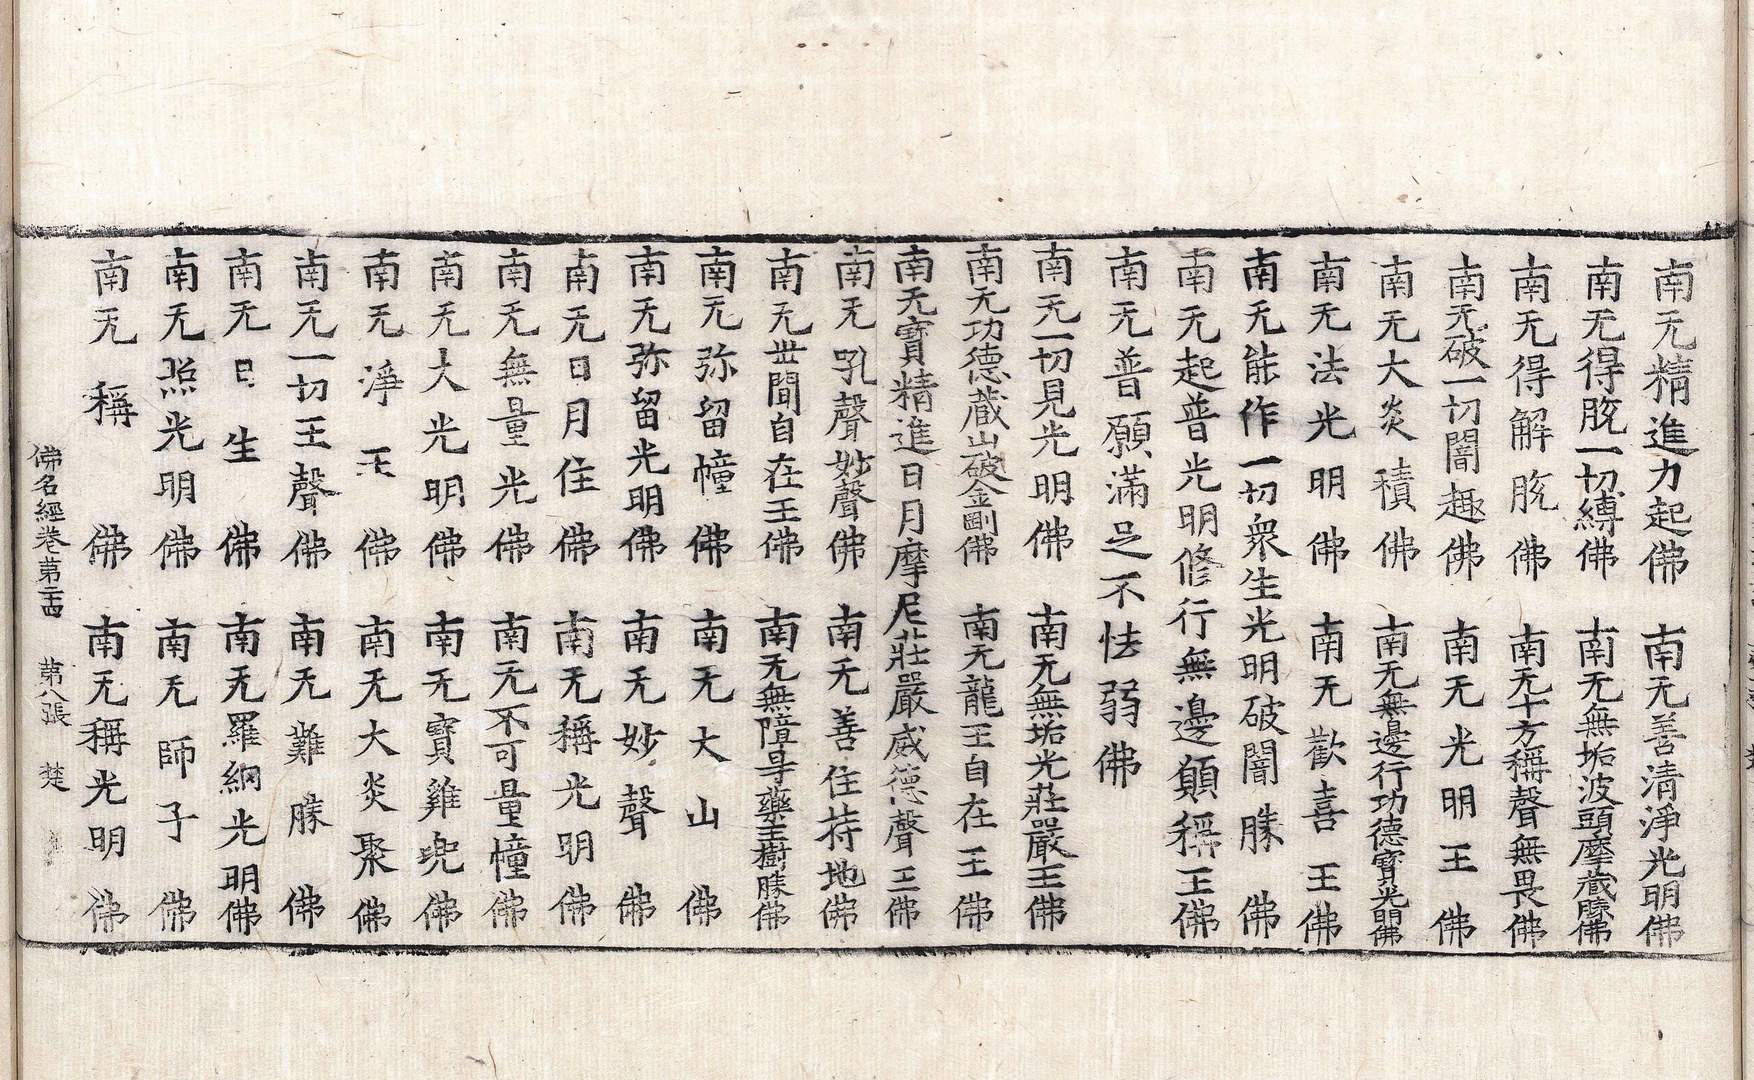 南无精進力起佛 南无善清淨光明佛
南无得脫一切縛佛 南无無垢波頭摩藏勝佛
南无得解脫佛 南无十方稱聲無畏佛
南无破一切闇趣佛 南无光明王佛
南无大炎積佛 南无無邊行功德寶光明佛
南无法光明佛 南无歡喜王佛
南无能作一切衆生光明破闇勝佛
南无起普光明修行無邊願稱王佛
南无普願滿足不怯弱佛
南无一切見光明佛 南无無垢光莊嚴王佛
南无功德藏山破金剛佛 南无龍王自在王佛
南无寶精進日月摩尼莊嚴威德聲王佛
南无吼聲妙聲佛 南无善住持地佛
南无世間自在王佛 南无無障㝵藥王樹勝佛
南无弥留幢佛 南无大山佛
南无弥留光明佛 南无妙聲佛
南无日月住佛 南无稱光明佛
南无無量光佛 南无不可量幢佛
南无大光明佛 南无寶雞兜佛
南无淨王佛 南无大炎聚佛
南无一切王聲佛 南无難勝佛
南无日生佛 南无羅網光明佛
南无照光明佛 南无師子佛
南无稱佛 南无稱光明佛
佛名經卷第二十四 第八張 楚